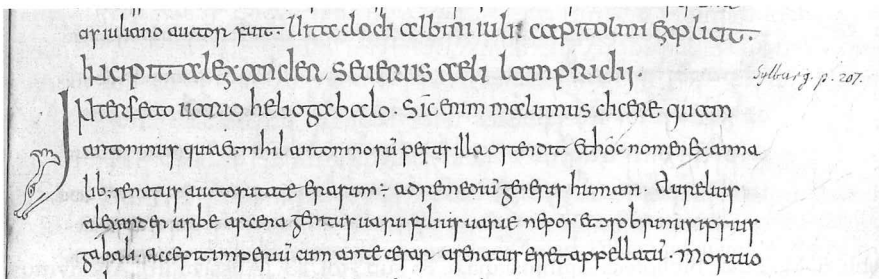 ar iuliano auctor sunt. Uitae clodi albini iulii capitolini explicit.
Incipit alexander seuerus aeli lampridii.
INterfecto uario heliogabalo. Sic enim malumus dicere quam
antoninus quia & nihil antoninorū pestis illa ostendit & hoc nomen ex anna
lib; senatus auctoritate erasum ÷ ad remediū generis humani. Aurelius
alexander urbe arcena genitus uarii filius uarie nepos & ↄsobrinus ipsius
gabali. accepit imperiū cum ante cesar a senatus esset appellatū. Mortuo
Sylburg. p. 207.